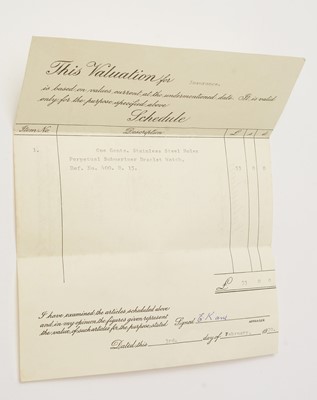 This Valuation for Insurance.
is based on values current at the undermentioned date. It is valid
only for the purpose specified above
Schedule
Item No Description £ s d
1. One Gents. Stainless Steel Rolex
Perpetual Submariner Bracelet Watch.
Ref. No.
£
I have examined the articles scheduled above
and in my opinion the figures given represent
the value of such articles for the purpose stated.
Signed
Dated this day of February,